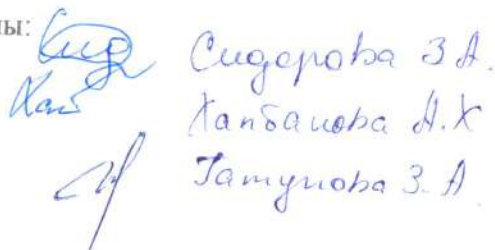 ны:
Сидорова З.А.
Хапбанова А.Х
Татунова З.А.